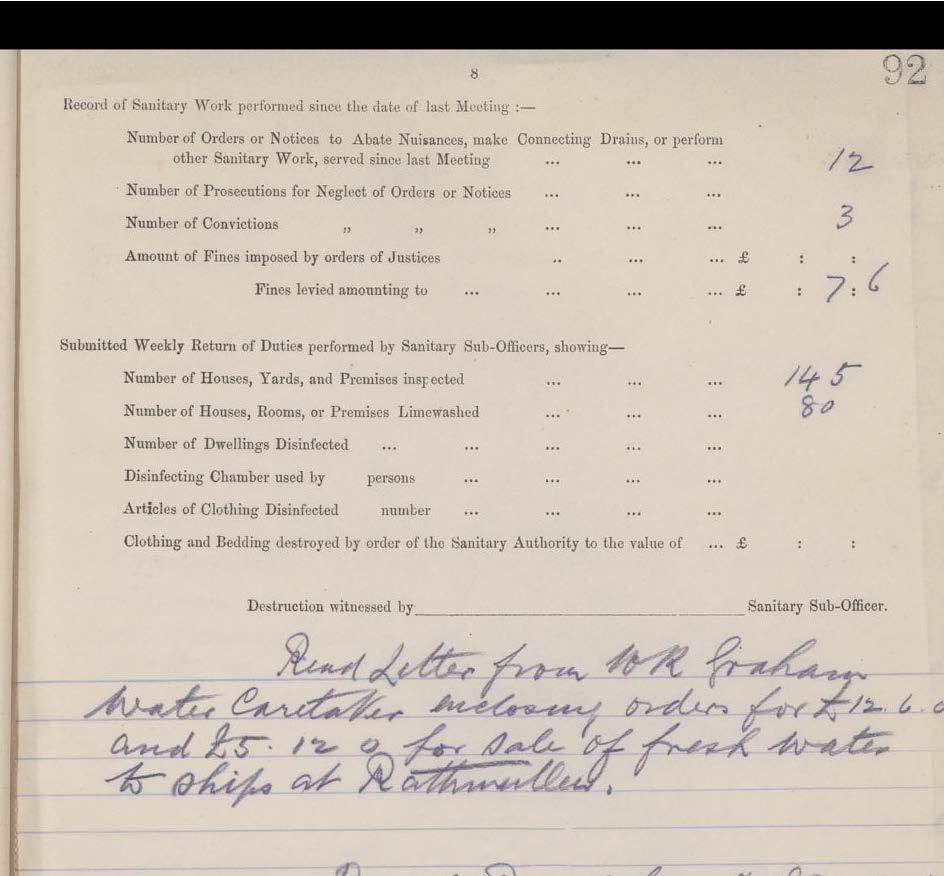 8
92
Record of Sanitary Work performed since the date of last Meeting :—
Number of Orders or Notices to Abate Nuisances, make Connecting Drains, or perform
other Sanitary Work, served since last Meeting ... ... ... 12
Number of Prosecutions for Neglect of Orders or Notices ... ... ...
Number of Convictions „ „ „ ... ... ... 3
Amount of Fines imposed by orders of Justices .. ... ... £ : :
Fines levied amounting to ... ... ... ... £ : 7 : 6
Submitted Weekly Return of Duties performed by Sanitary Sub-Officers, showing—
Number of Houses, Yards, and Premises inspected ... ... ... 145
Number of Houses, Rooms, or Premises Limewashed ... ... ... 80
Number of Dwellings Disinfected ... ... ... ... ...
Disinfecting Chamber used by persons ... ... ... ...
Articles of Clothing Disinfected number ... ... ... ...
Clothing and Bedding destroyed by order of the Sanitary Authority to the value of ... £ : :
Destruction witnessed by Sanitary Sub-Officer.
Read Letter from W R Graham
Water Caretaker enclosing orders for £12. 6. 0
and £5. 12 0 for sale of fresh water
to ships at Rathmullen.